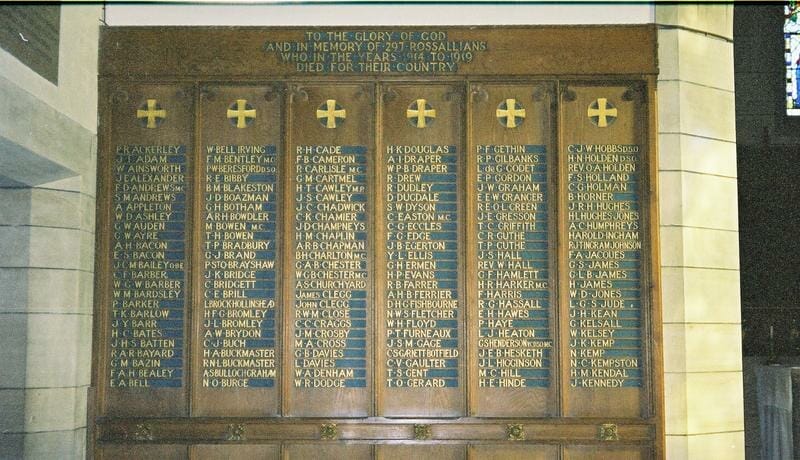 TO THE GLORY OF GOD
AND IN MEMORY OF 297 ROSSALLIANS
WHO IN THE YEARS 1914 TO 1919
DIED FOR THEIR COUNTRY
P·R·ACKERLEY
J·T·ADAM
W·AINSWORTH
J·ALEXANDER
F·D·ANDREWS MC
S·M·ANDREWS
A·APPLETON
W·D·ASHLEY
G·W·AUDEN
G·W·AYRE
A·H·BACON
E·S·BACON
J·C·M·BAILEY OBE
C·F·BARBER
W·G·W·BARBER
W·M·BARDSLEY
P·BARKER
T·K·BARLOW
J·Y·BARR
H·C·BATES
J·H·S·BATTEN
R·A·R·BAYARD
G·M·BAZIN
F·A·H·BEALEY
E·A·BELL
W·BELL IRVING
F·M·BENTLEY M.C.
P·W·BERESFORD D.S.O.
R·E·BIBBY
B·M·BLAKESTON
J·D·BOAZMAN
G·H·BOTHAM
A·R·H·BOWDLER
M·BOWEN M.C.
T·H·BOWEN
T·P·BRADBURY
G·J·BRAND
P·STO·BRAYSHAW
J·K·BRIDGE
C·BRIDGETT
C·E·BRILL
L·BROCK·HOLLINSHEAD
H·F·G·BROMLEY
J·L·BROMLEY
A·W·BRYDON
C·J·BUCH
H·A·BUCKMASTER
R·N·L·BUCKMASTER
A·S·BULLOCH·GRAHAM
N·O·BURGE
R·H·CADE
F·B·CAMERON
R·CARLISLE M.C.
G·M·CARTMEL
H·T·CAWLEY M.P.
J·S·CAWLEY
J·C·CHADWICK
C·K·CHAMIER
J·D·CHAMPNEYS
H·M·CHAPLIN
A·R·B·CHAPMAN
B·H·CHARLTON M.C.
G·A·B·CHESTER
W·G·B·CHESTER M.C.
A·S·CHURCHYARD
JAMES CLEGG
JOHN CLEGG
R·W·M·CLOSE
C·C·CRAGGS
J·M·CROSBY
M·A·CROSS
G·B·DAVIES
L·DAVIES
W·A·DENHAM
W·R·DODGE
H·K·DOUGLAS
A·I·DRAPER
W·P·B·DRAPER
R·DREW
R·DUDLEY
D·DUGDALE
S·W·DYSON
C·EASTON M.C.
C·G·ECCLES
F·G·EDGE
J·B·EGERTON
Y·L·ELLIS
G·H·ERMEN
H·P·EVANS
R·B·FARRER
A·H·B·FERRIER
D·H·G·FISHBOURNE
N·W·S·FLETCHER
W·H·FLOYD
P·T·FURNEAUX
J·S·M·GAGE
C·S·GARNETT BOTFIELD
C·V·GAULTER
T·S·GENT
T·O·GERARD
P·F·GETHIN
R·P·GILBANKS
L·du G·GODET
E·P·GORDON
J·W·GRAHAM
E·E·W·GRANGER
R·E·O·L·GREEN
J·E·GRESSON
T·C·GRIFFITH
C·R·GUTHE
T·P·CUTHE
J·S·HALL
REV W·HALL
C·F·HAMLETT
H·R·HARKER M.C.
F·HARRIS
R·G·HASSALL
E·H·HAWES
P·HAYE
L·J·HEATON
G·S·HENDERSON V.C.D.S.O.M.C.
J·E·B·HESKETH
J·L·HIGGINSON
M·C·HILL
H·E·HINDE
C·J·W·HOBBS D.S.O.
H·N·HOLDEN D.S.O.
REV·O·A·HOLDEN
F·S·HOLLAND
C·G·HOLMAN
B·HORNER
J·R·H·HUGHES
H·L·HUGHES·JONES
A·C·HUMPHREYS
HAROLD·INGHAM
R·J·T·INGRAM·JOHNSON
F·A·JACQUES
G·S·JAMES
G·L·B·JAMES
H·JAMES
W·D·JONES
L·G·S·JUDE
J·H·KEAN
G·KELSALL
W·KELSEY
J·K·KEMP
N·KEMP
N·C·KEMPSTON
H·M·KENDAL
J·KENNEDY